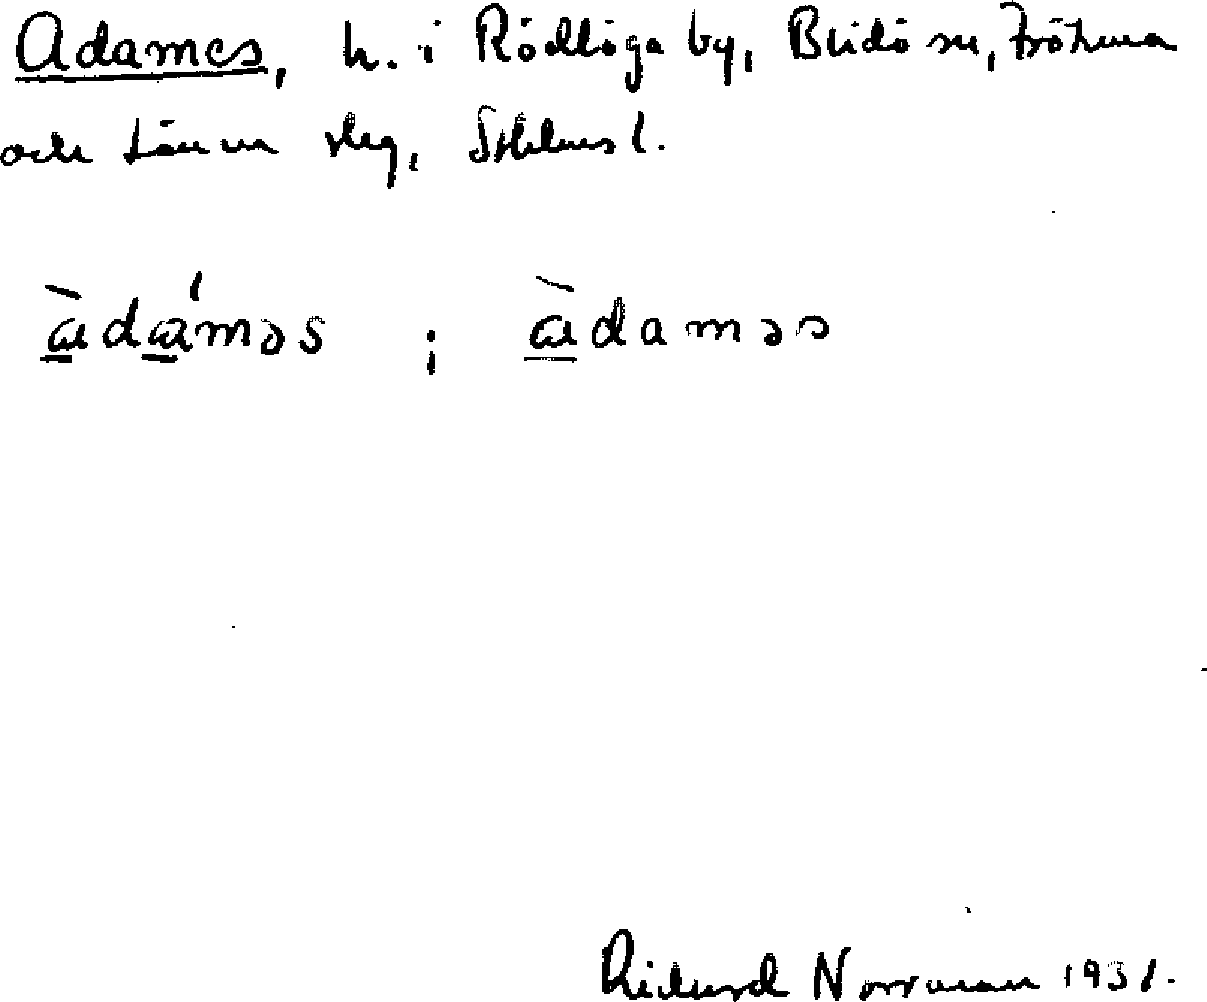 Adames, h. i Rödlöga by, Blidö sn, Fröhuna
och Länna slg, Sthlms l.
ɑ̀dɑ́məs ; ɑ̀daməs
Richard Norrman 1931.